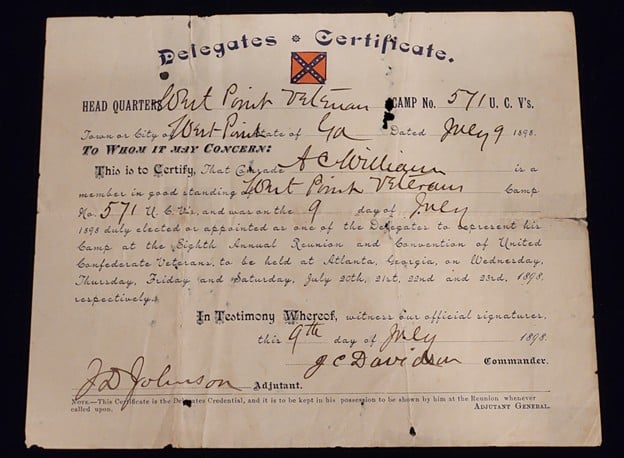 Delegates Certificate.
HEAD QUARTERS West Point Veteran CAMP No. 571 U. C. V's.
Town or City of West Point State of Ga Dated July 9 1898.
TO WHOM IT MAY CONCERN:
This is to Certify, That Comrade A C William is a
member in good standing of West Point Veterans Camp
No. 571 U. C. V's, and was on the 9 day of July
1898 duly elected or appointed as one of the Delegates to represent his
Camp at the Eighth Annual Reunion and Convention of United
Confederate Veterans, to be held at Atlanta, Georgia, on Wednesday,
Thursday, Friday and Saturday, July 20th, 21st, 22nd and 23rd, 1898,
respectively.
In Testimony Whereof, witness our official signatures,
this 9th day of July 1898.
J C Davidson Commander.
J D Johnson Adjutant.
NOTE.—This Certificate is the Delegates Credential, and it is to be kept in his possession to be shown by him at the Reunion whenever
called upon. ADJUTANT GENERAL.